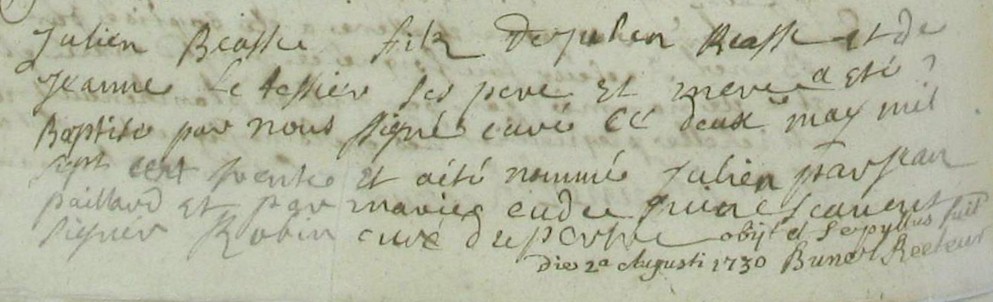 Julien Beasse fils de Julien Beasse et de
Jeanne Le tessier ses pere et mere a eté
Baptisé par nous signé curé ce deux may mil
sept cent trente et aété nommé Julien par Jean
paillard et par marie qui ne scavent
signer Robin curé du
obijt et sepultus fuit
die 2a Augusti 1730 Recteur